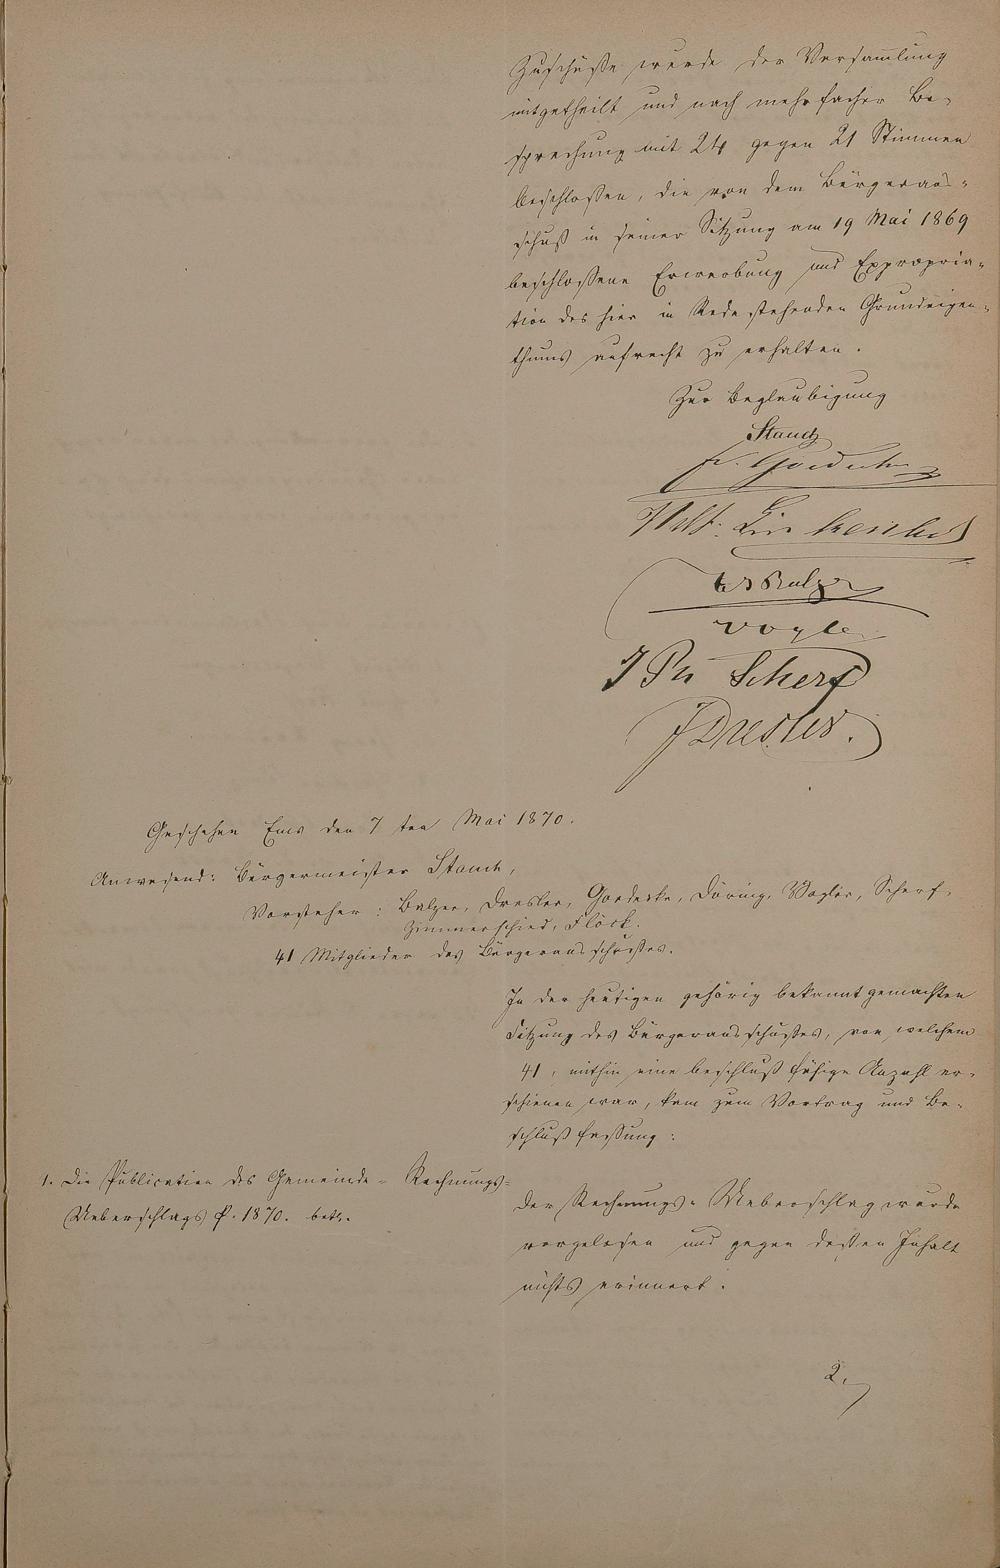 Zuschusse wurde der Versammlung
mitgetheilt und nach mehrfacher Be-
sprechung mit 24 gegen 21 Stimmen
beschlossen, die von dem Bürgeraus-
schuß in seiner Sitzung am 19 Mai 1869
beschlossene Erwerbung und Expropria-
tion des hier in Rede stehenden Grundeigen-
thums aufrecht zu erhalten.
Zur Beglaubigung
Stauch
Balzer
Vogler
J Ph Scherf
J Dresler.
Geschehen Ems den 7ten Mai 1870.
Anwesend: Bürgermeister Stauch,
Vorsteher: Balzer, Dresler, Goedecke, Döring, Vogler, Scherf,
Zimmerschied, Flöck.
41 Mitglieder des Bürgerausschusses.
In der heutigen gehörig bekanntgemachten
Sitzung des Bürgerausschusses, von welchem
41, mithin eine beschlußfähige Anzahl er-
schienen war, kam zum Vortrag und Be-
schlußfassung:
1. Die Publication des Gemeinde-Rechnungs-
Ueberschlags p. 1870. betr.
Der Rechnungs-Ueberschlag wurde
vorgelesen und gegen dessen Inhalt
nichts erinnert.
2.,